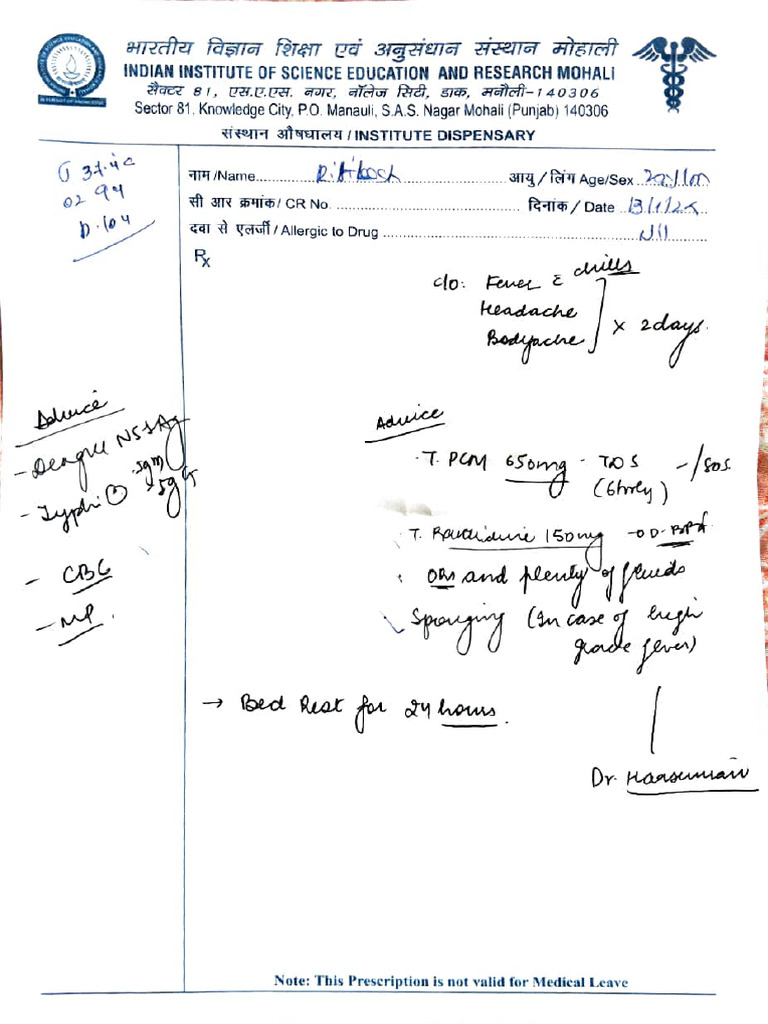 भारतीय विज्ञान शिक्षा एवं अनुसंधान संस्थान मोहाली
INDIAN INSTITUTE OF SCIENCE EDUCATION AND RESEARCH MOHALI
सैक्टर 81, एस.ए.एस. नगर, नॉलेज सिटी, डाक, मनौली-140306
Sector 81, Knowledge City, P.O. Manauli, S.A.S. Nagar Mohali (Punjab) 140306
संस्थान औषधालय / INSTITUTE DISPENSARY
नाम /Name
आयु / लिंग Age/Sex
सी आर क्रमांक/ CR No.
दिनांक / Date
दवा से एलर्जी / Allergic to Drug Nil
Rx
c/o: Fever chills
Headache
Bodyache
x 2days.
Advice
- Dengue NS1Ag
- Typhi
IgM
IgG
- CBC
- MP.
Advice
T. PCM 650mg - TDS - /SOS.
(6hrly)
T. 150mg - OD
ORS and plenty of fluids
Sponging (In case of high
grade fever)
→ Bed Rest for 24 hours.
Dr.
Note: This Prescription is not valid for Medical Leave